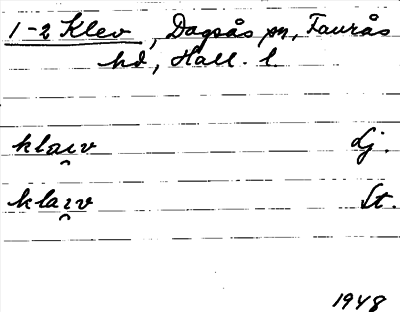 1-2 Klev, Dagsås sn, Faurås
hd, Hall. l.
klaı̯v Lj.
klaı̯v St.
1948